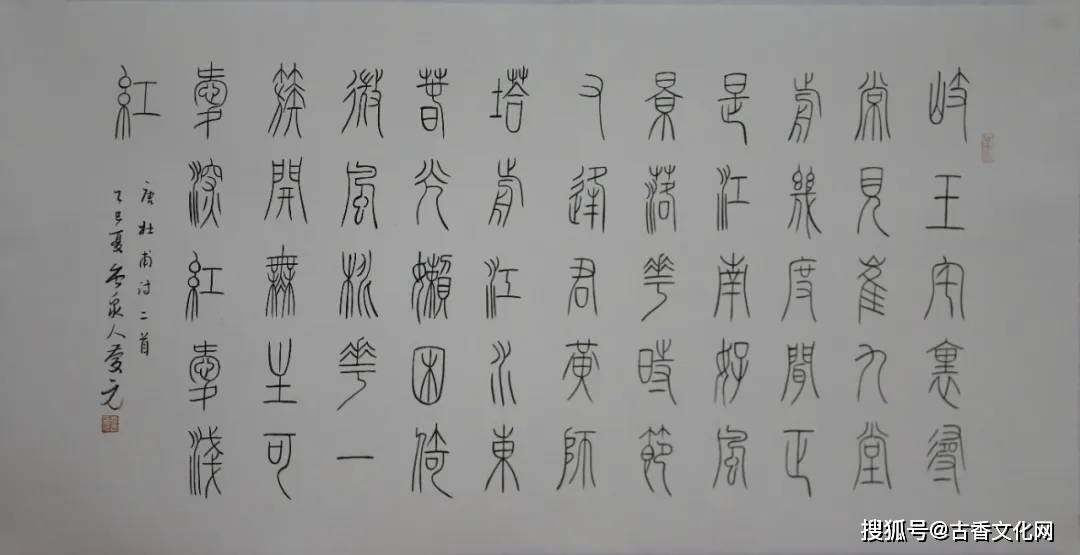 岐王宅裏尋
常見崔九堂
前幾度聞正
是江南好風
景落花時節
又逢君黃師
塔前江水東
春光懶困倚
微風桃花一
簇開無主可
愛深紅愛淺
紅
唐杜甫诗二首
乙巳夏泉人元
搜狐号@古香文化网